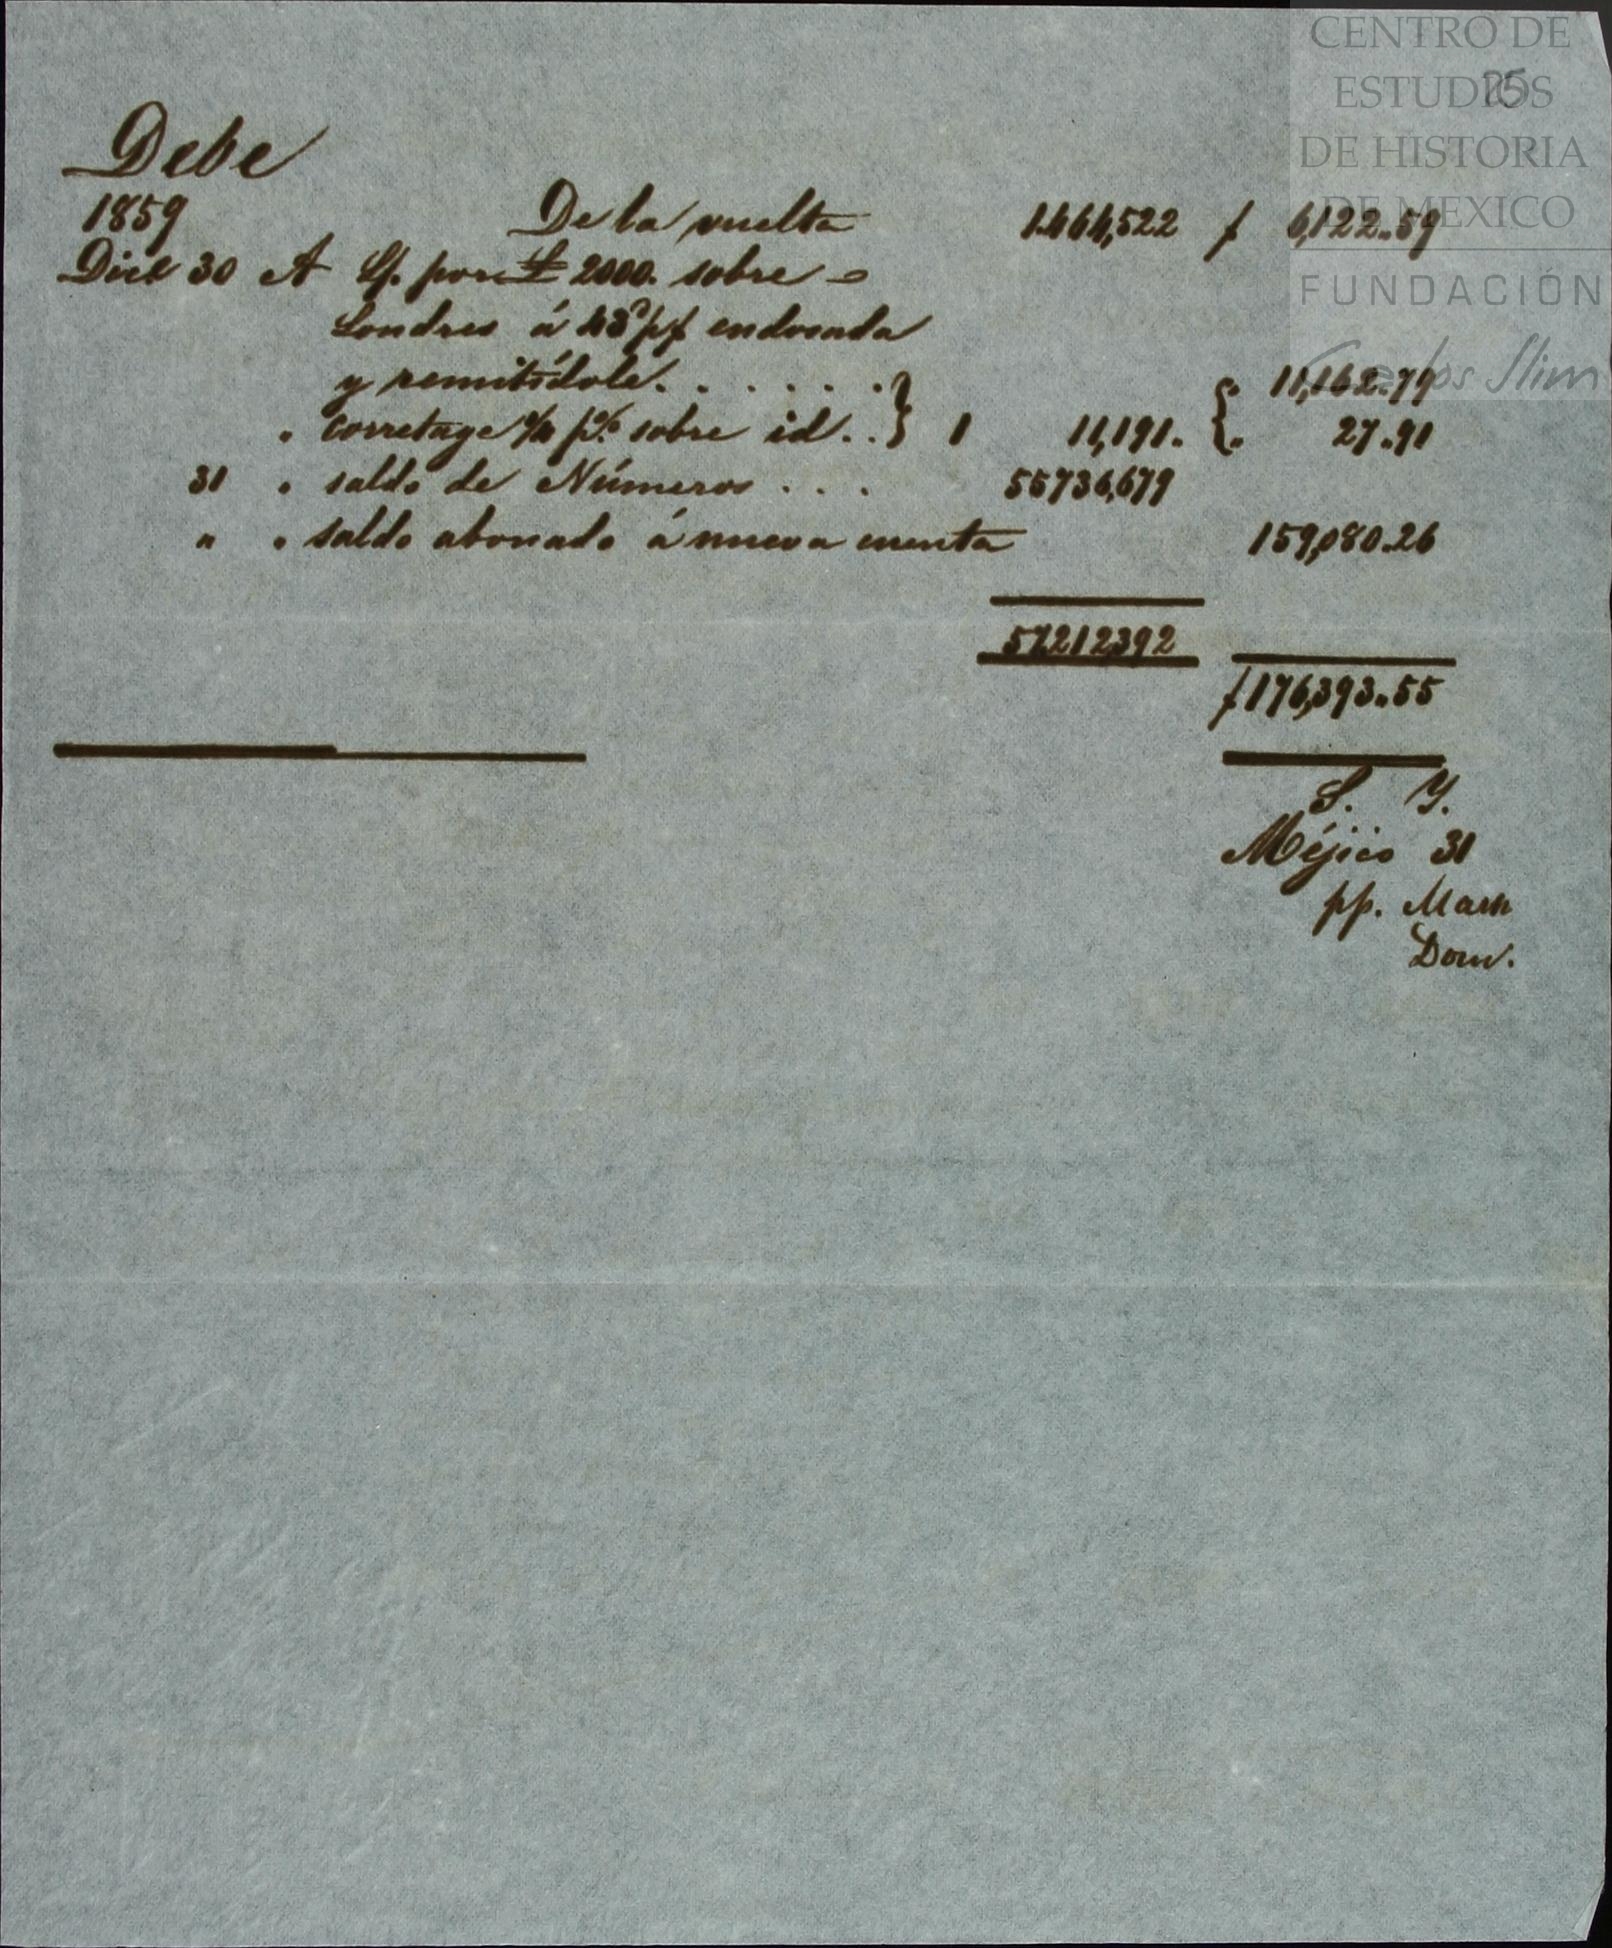 CENTRO DE
ESTUDIOS
DE HISTORIA
DE MEXICO
FUNDACIÓN
Carlos Slim
25
Debe
1859 De la vuelta 1.464,522 $ 6,122.59
Dice 30 A L/. por £ 2000. sobre
Londres á 43d p$ endosada
y remitídole. . . . . . . 11,162.79
" corretage ¼ p% sobre id. . } 1 11,191. { " 27.91
31 " saldo de Números . . . 55736,679
" " saldo abonado á nueva cuenta 159,080.26
57.212,392
$176,393.55
S. Y.
Méjico 31
pp. Mart
Dom.